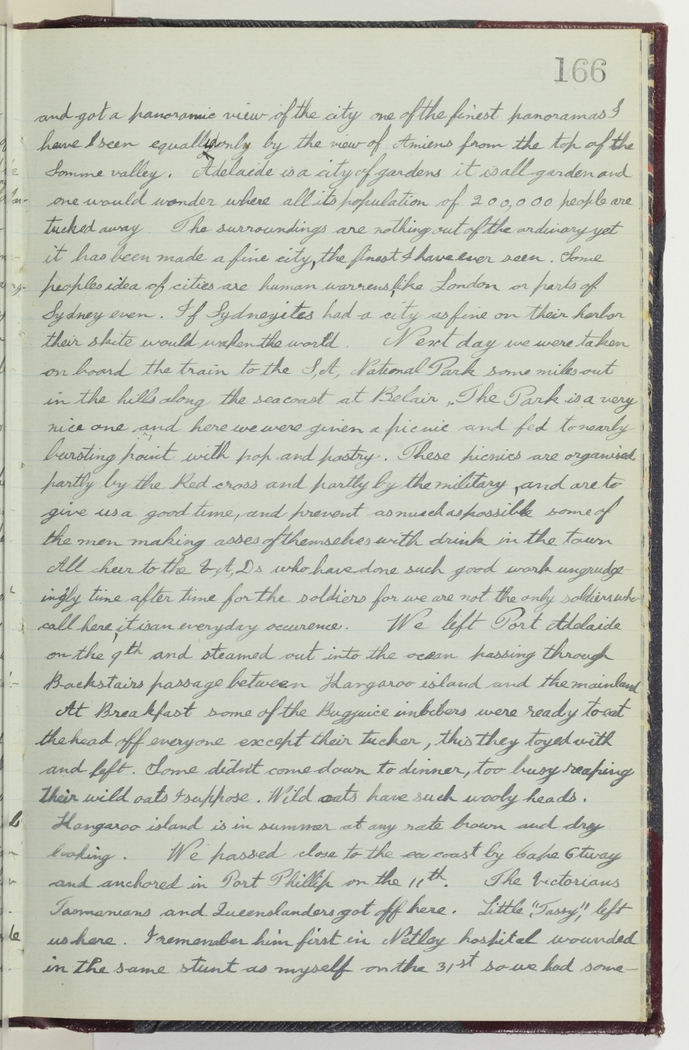 166
and got a panoramic view of the city one of the finest panoramas I
have I seen equalled only by the view of Amiens from the top of the
Somme valley. Adelaide is a city of gardens it is all garden and
one would wonder where all its population of 200,000 people are
tucked away The surroundings are nothing out of the ordinary yet
it has been made a fine city, the finest I have ever seen. Some
peoples idea of cities are human warrens, like London or parts of
Sydney even. If Sydneyites had a city as fine on their harbor
their skite would waken the world. Next day we were taken
on board the train to the S,A, National Park some miles out
in the hills along the seacoast at Belair. The Park is a very
nice one and here we were given a picnic and fed to nearly
bursting point with pop and pastry. These picnics are organised
partly by the Red cross and partly by the military, and are to
give us a good time, and prevent as much as possible some of
the men making asses of themselves with drink in the town
All cheer to the V,A,Ds who have done such good work ungrudge-
ingly time after time for the soldiers for we are not the only soldiers who
call here, it is an everyday occurence. We left Port Adelaide
on the 9th and steamed out into the ocean passing through
Backstairs passage between Kangaroo island and the mainland
At Breakfast some of the Bugjuice imbibers were ready to eat
the head off everyone except their tucker, this they toyed with
and left. Some didn't come down to dinner, too busy reaping
their wild oats I suppose. Wild oats have such wooly heads.
Kangaroo island is in summer at any rate brown and dry
looking. We passed close to the coast by Cape Otway
and anchored in Port Phillip on the 11th. The Victorians
Tasmanians and Queenslanders got off here. Little "Tassy", left
us here. I remember him first in Netley hospital wounded
in the same stunt as myself on the 31st so we had some-